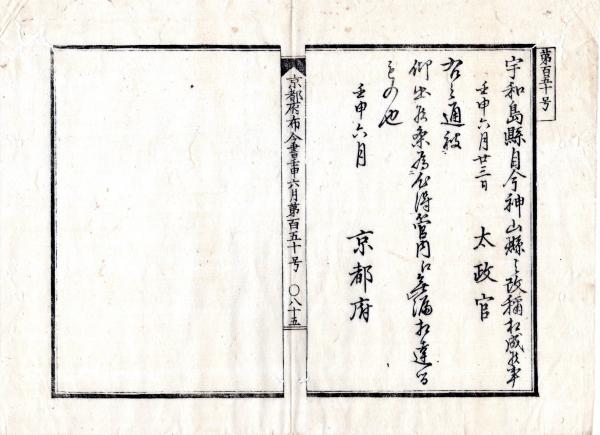 第百五十号
宇和島縣自今神山縣と改稱相成候事
壬申六月廿三日 太政官
右之通被
仰出候条為心得管内江無漏相達る
もの也
壬申六月 京都府
京都府布令書壬申六月第百五十号 〇八十五